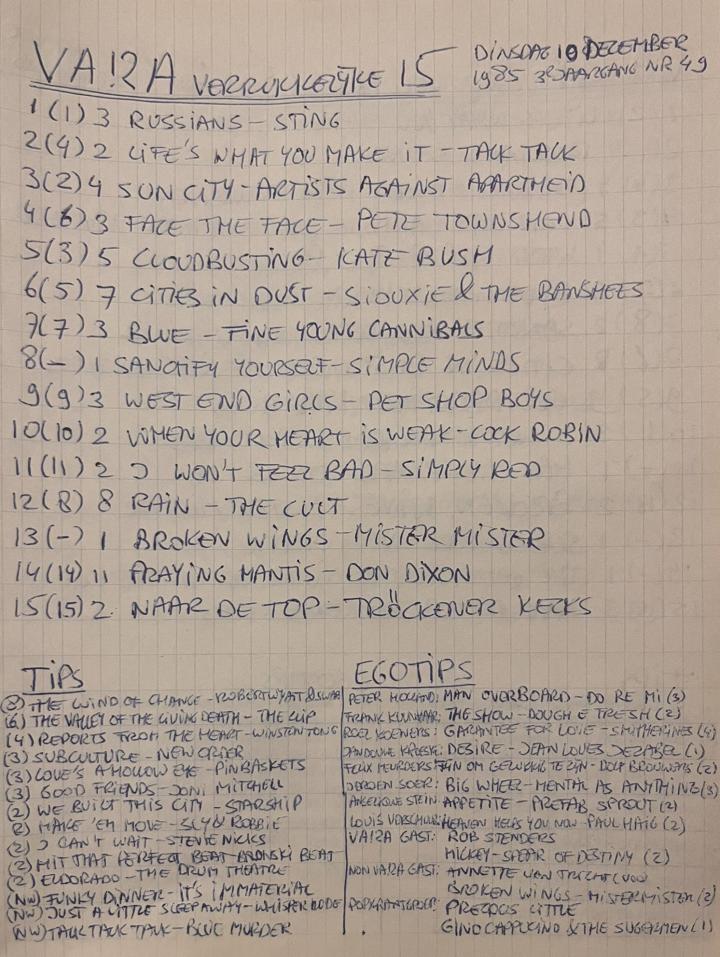 VA!2A VERRUKKELIJKE 15
DINSDAG 10 DEZEMBER
1985 3E JAARGANG NR 49
1 (1) 3 RUSSIANS - STING
2 (4) 2 LIFE'S WHAT YOU MAKE IT - TALK TALK
3 (2) 4 SUN CITY - ARTISTS AGAINST APARTHEID
4 (6) 3 FACE THE FACE - PETE TOWNSHEND
5 (3) 5 CLOUDBUSTING - KATE BUSH
6 (5) 7 CITIES IN DUST - SIOUXIE & THE BANSHEES
7 (7) 3 BLUE - FINE YOUNG CANNIBALS
8 (-) 1 SANCTIFY YOURSELF - SIMPLE MINDS
9 (9) 3 WEST END GIRLS - PET SHOP BOYS
10 (10) 2 WHEN YOUR HEART IS WEAK - COCK ROBIN
11 (11) 2 I WON'T FEEL BAD - SIMPLY RED
12 (8) 8 RAIN - THE CULT
13 (-) 1 BROKEN WINGS - MISTER MISTER
14 (14) 11 PRAYING MANTIS - DON DIXON
15 (15) 2 NAAR DE TOP - TRÖCKENER KECKS
TIPS
(8) THE WIND OF CHANGE - ROBERT WYATT & SWAPO
(6) THE VALLEY OF THE LIVING DEATH - THE CLIP
(4) REPORTS FROM THE HEART - WINSTON TONG
(3) SUBCULTURE - NEW ORDER
(3) LOVE'S A HOLLOW EYE - PINBASKETS
(3) GOOD FRIENDS - JONI MITCHELL
(2) WE BUILT THIS CITY - STARSHIP
(2) MAKE 'EM MOVE - SLY & ROBBIE
(2) I CAN'T WAIT - STEVIE NICKS
(2) HIT THAT PERFECT BEAT - BRONSKI BEAT
(2) ELDORADO - THE DRUM THEATRE
(NW) FUNKY DINNER - IT'S IMMATERIAL
(NW) JUST A LITTLE SLEEP AWAY - WHISPER NODE
(NW) TALK TALK TALK - BLUE MURDER
EGOTIPS
PETER HOLLAND: MAN OVERBOARD - DO RE MI (3)
FRANK KUNHAAR: THE SHOW - DOUGH E FRESH (2)
ROEL KOENERS: GARANTEE FOR LOVE - SMITHERINES (4)
JAN DOUWE KROESKE: DESIRE - JEAN LOVES JEZABEL (1)
FELIX MEURDERS: FIJN OM GELUKKIG TE ZIJN - DOLF BROUWERS (2)
JEROEN SOER: BIG WHEEL - MENTAL AS ANYTHING (3)
ANGELIQUE STEIN APPETITE - PREFAB SPROUT (2)
LOUIS VERSCHUREN HEAVEN HELPS YOU NOW - PAUL HAIG (2)
VARA GAST: ROB STENDERS
MICKEY - SPEAR OF DESTINY (2)
NON VARA GAST: ANNETTE VAN TRICHT
BROKEN WINGS - MISTER MISTER (2)
POPKRANTGROEP: PRECIOUS LITTLE
GINO CAPPUCINO & THE SUGERMEN (1)